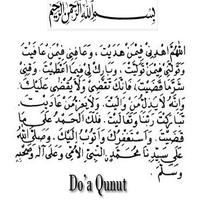 بِسْمِ اللهِ الرَّحْمٰنِ الرَّحِيْمِ
اَللّٰهُمَّ اهْدِنِيْ فِيْمَنْ هَدَيْتَ، وَعَافِنِيْ فِيْمَنْ عَافَيْتَ
وَتَوَلَّنِيْ فِيْمَنْ تَوَلَّيْتَ، وَبَارِكْ لِيْ فِيْمَا اَعْطَيْتَ، وَقِنِيْ
شَرَّ مَا قَضَيْتَ، فَاِنَّكَ تَقْضِيْ وَلَا يُقْضَى عَلَيْكَ،
وَاِنَّهُ لَا يَذِلُّ مَنْ وَالَيْتَ، وَلَا يَعِزُّ مَنْ عَادَيْتَ،
تَبَارَكْتَ رَبَّنَا وَتَعَالَيْتَ، فَلَكَ الْحَمْدُ عَلَى مَا
قَضَيْتَ، وَاَسْتَغْفِرُكَ وَاَتُوْبُ اِلَيْكَ، وَصَلَّى اللهُ
عَلَى سَيِّدِنَا مُحَمَّدٍ النَّبِيِّ الْاُمِّيِّ وَعَلَى اٰلِهِ وَصَحْبِهِ
وَسَلَّمَ.
Do'a Qunut